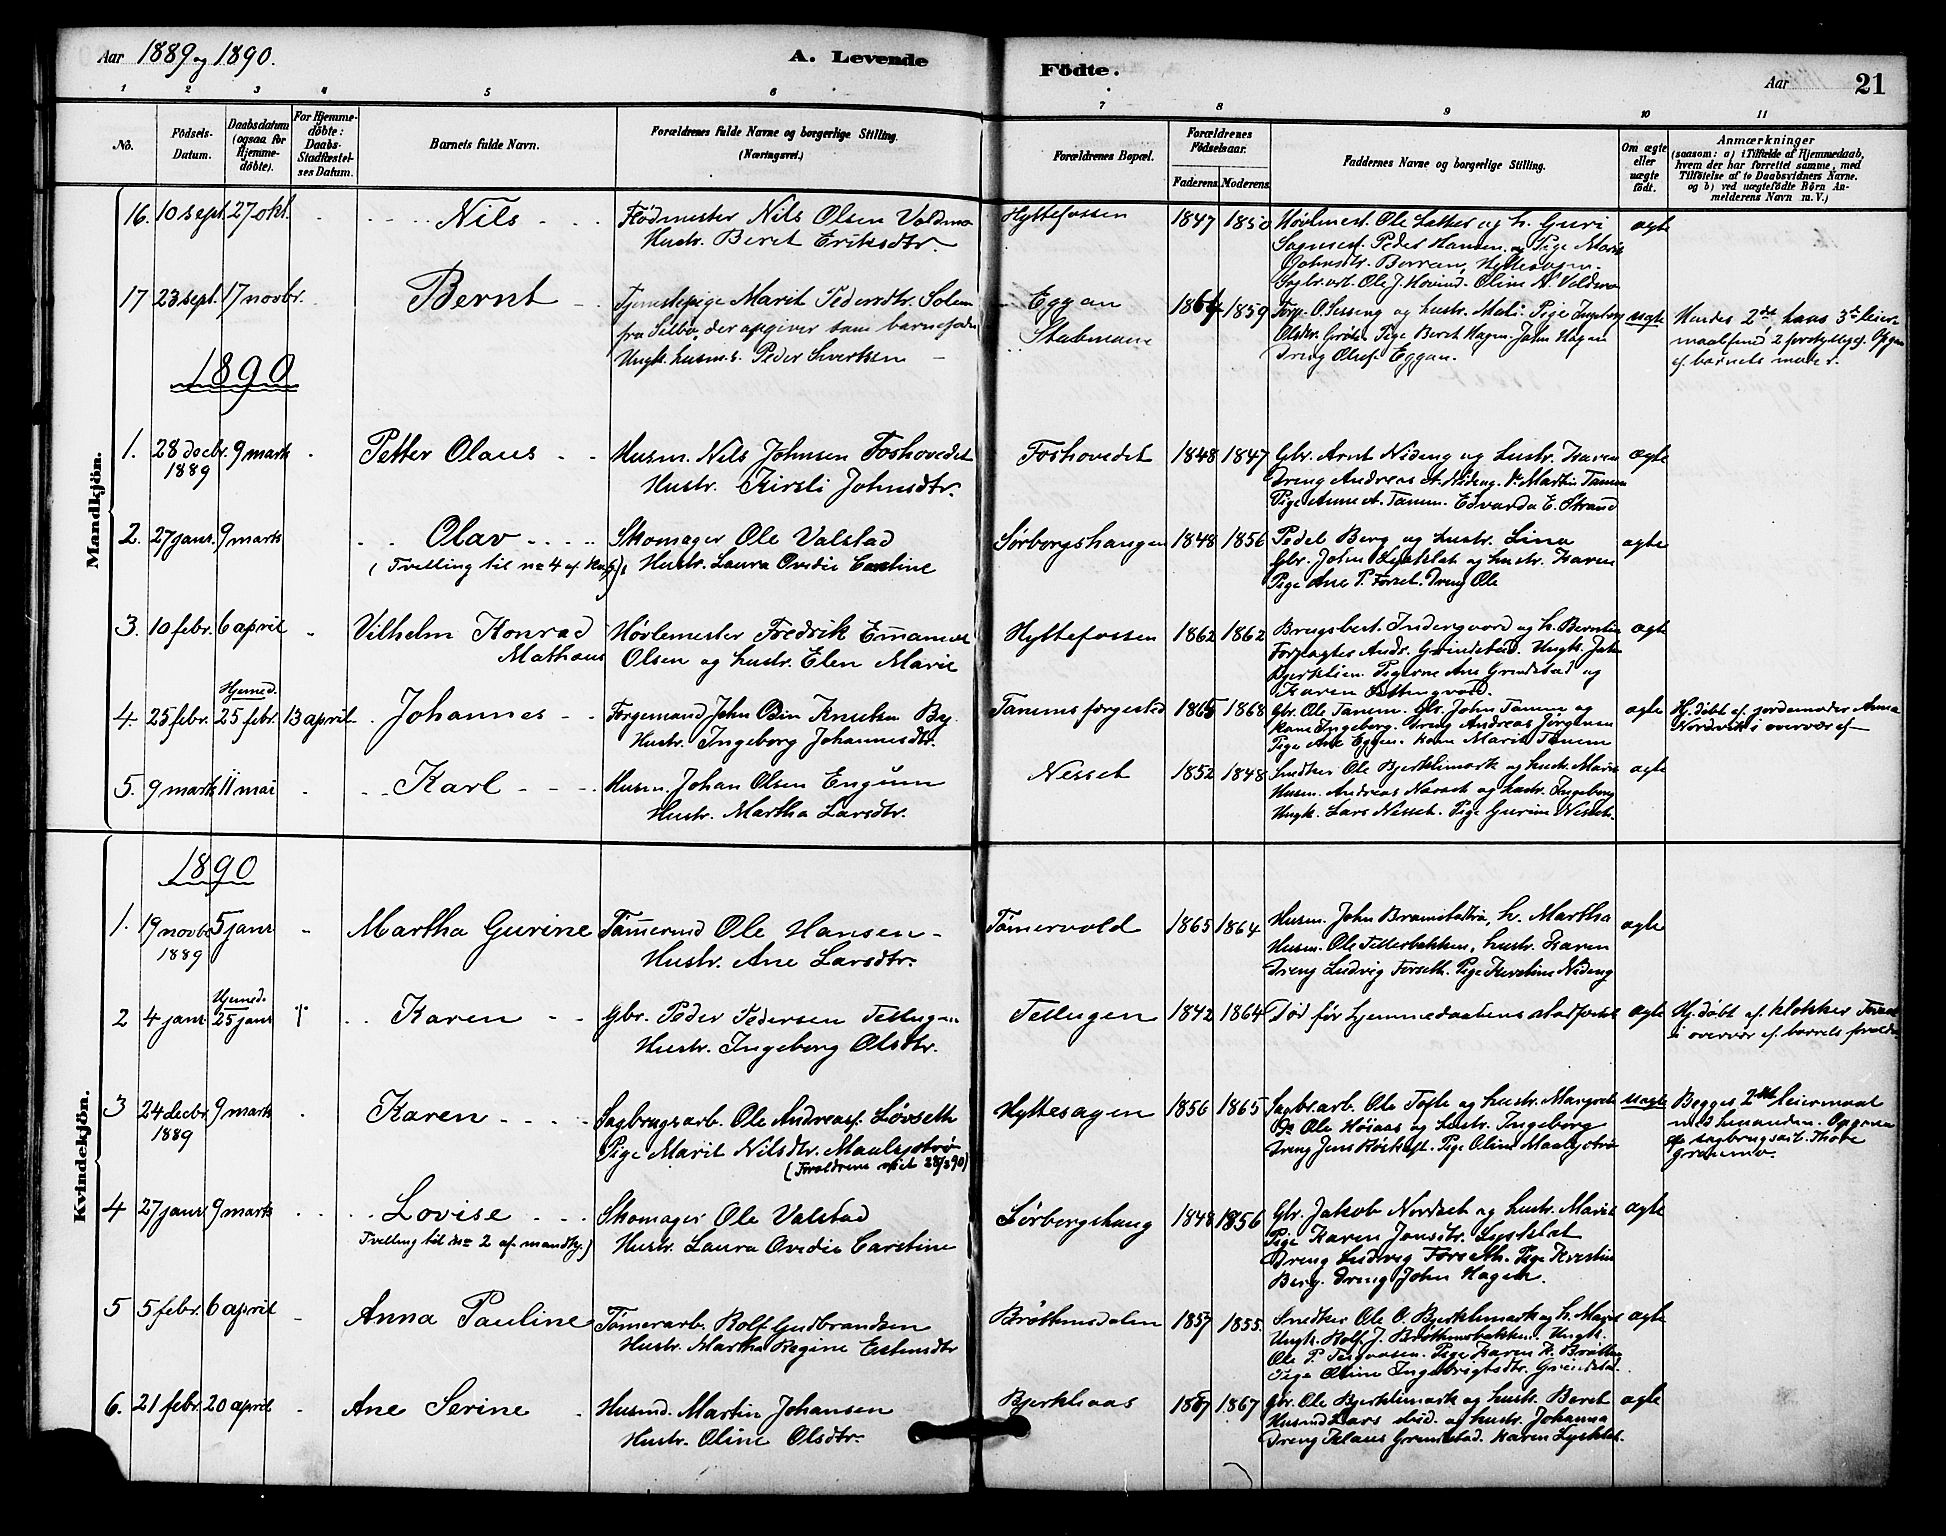 Aar 1889 og 1890.
A. Levende
Födte.
Aar
21
1 2 3 4 5 6 7 8 9 10 11
No.
Födsels-Datum.
Daabsdatum (ogsaa for Hjemme-döbte).
For Hjemme-döbte: Daabs-Stadfæstel-ses Datum.
Barnets fulde Navn.
Forældrenes fulde Navne og borgerlige Stilling. (Næringsvei.)
Forældrenes Bopæl.
Forældrenes Födselsaar.
Faderens. Moderens.
Faddernes Navne og borgerlige Stilling.
Om ægte eller uægte födt.
Anmærkninger
(saasom: a) i Tilfælde af Hjemmedaab,
hvem der har forrettet samme, med
Tilföielse af to Daabsvidners Navne.
og b) ved uægtefödte Börn An-
melderens Navn m. V.)
Mandkjön.
16. 10 sept. 27 okt. Nils
Nils Olsen
Hustr. Beret Eriksdtr.
Hyttefossen 1847 1850
Ole og h. Guri
Peder Hansen og Pige Marit
ægte
17 23 sept. 17 novbr. Bernt
Tjenestepige Marit Pedersdtr.
fra Selbo, der opgiver som barnefader
Ungk. husm.s. Peder Sivertsen
Eggan
1864 1859
og hustr. Pige Ingeborg
Pige Beret Hagen. John Hagen
Dreng Oluf Eggan.
uægte
Hendes 2det, hans 3die leier-
af barnets moder.
1890
1. 28 decbr. 1889 9 marts Petter Olaus
Husm. Nils Johnsen Foshovedet
Hustr. Kirsti Johnsdtr.
Foshovedet 1848 1847
Gbr. Arnt Nideng og hustr. Karen
Dreng Andreas A. Nideng. Do Martin Tanem
Pige Anne A. Tanem. Edvarda E. Strand
ægte
2. 27 janr. 9 marts Olav
(Tvelling til no 4 af kvk.)
Skomager Ole Valstad
Hustr. Laura Ovidie Carstine
Sørborgshaugen 1848 1856
Pedel Berg og hustr. Lina
Gbr. John Lysklet og hustr. Karen
Pige Ane P. Forset. Dreng Ole
ægte
3. 10 febr. 6 april Vilhelm Konrad
Mathæus
Høvlemester Fredrik Emanuel
Olsen og hustr. Elen Marie
Hyttefossen 1862 1862
og h. Berntine
Ungk. John
Pigerne Ane Grindstad og
Karen
ægte
Hjemmed.
4. 25 febr. 25 febr. 13 april Johannes
Færgemand John Odin Knutsen By
Hustr. Ingeborg Johannesdtr.
Tanemsfærgested 1865 1868
Gbr. Ole Tanem. Gbr. John Tanem og
kone Ingeborg. Dreng Andreas Jørgensen
Pige Ane Eggen. kone Marit Tanem
ægte
Hj. døbt af jordemoder Anna
Nordvik i overvær af
5. 9 marts 11 mai Karl
Husm. Johan Olsen Engum
Hustr. Martha Larsdtr.
Nesset 1852 1848
Snedker Ole Bjerklimark og hustr. Marit
Husm. Andreas Nesset og hustr. Ingeborg
Ungk. Lars Nesset. Pige Gurine Nesset.
ægte
Kvindekjön.
1890
1. 19 novbr. 1889 5 janr Martha Gurine
Tømmermd Ole Hansen
Hustr. Ane Larsdtr.
Tømervold 1865 1864
Husm. John h. Martha
Husm. Ole Tillerbakken, hustr. Karen
Dreng Ludvig Forseth. Pige Kirstine Nideng
ægte
Hjemmed.
2 4 janr 25 janr † Karen
Gbr. Peder Pedersen Tellugen
Hustr. Ingeborg Olsdtr.
Tellugen 1842 1864
Død før hjemmedaabens stadfæst
ægte
Hj. døbt af klokker
i overvær af barnets forældre
3 24 decbr 1889 9 marts Karen
Sagbrugsarb. Ole Andreas. Løvseth
Pige Marit Nilsdtr. Maalsjøtrø
(Forældrene viet 28/3 90)
Hyttesagen 1856 1865
Sagbr.arb. Ole Tofte og hustr. Margrete
Do Ole Hoiaas og hustr. Ingeborg
Pige Oline Maalsjøtrø
uægte
Begges 2det leiermaal
med hinanden.
af sagbrugsarb. Thore
Granmo.
4 27 janr 9 marts Lovise
Tvelling til no 2 af mandkj.)
Skomager Ole Valstad
Hustr. Laura Ovidie Carstine
Sørborgshaug 1848 1856
Gbr. Jakob Nordset og hustr. Marit
Pige Karen Jonsdtr. Lysklet
Dreng Ludvig Forseth. Pige Kirstine
Berg. Dreng John Hagen.
ægte
5 5 febr. 6 april Anna Pauline
Tømerarb. Rolf Gudbrandsen
Hustr. Martha Regine Estensdtr
Brøttemsdalen 1857 1855.
Snedker Ole O. Bjerklimark og h. Marit
Ungk. Rolf J. Brøttemsbakken. Ungk.
Ole P. Pige Karen K. Brøttem
Pige Oline Ingebrigtsdtr. Grindstad.
ægte
6. 21 febr. 20 april Ane Serine
Husmd. Martin Johansen
Hustr. Oline Olsdtr.
Bjerkhaas 1867 1867
Gbr. Ole Bjerklimark og hustr. Beret
Husmd Lars ibid. og hustr. Johanna
Dreng Klaus Grendstad. Karen Lysklet.
ægte